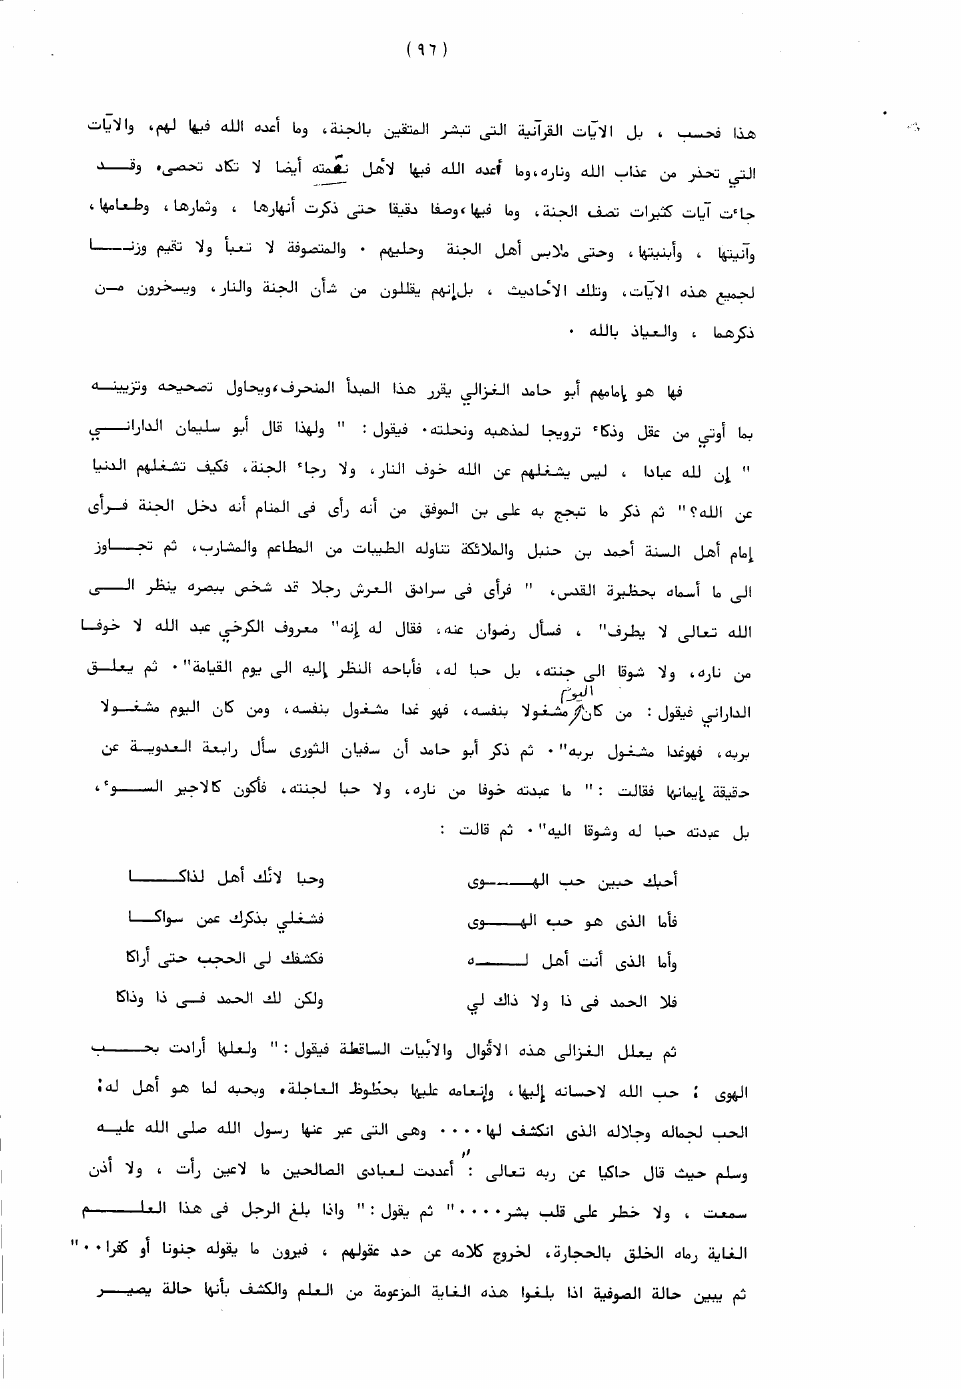 (٩٦)
هذا فحسب ، بل الآيات القرآنية التى تبشر المتقين بالجنة، وما أعده الله فيها لهم، والآيات
التي تحذر من عذاب الله وناره،وما أعده الله فيها لأهل نقمته أيضا لا تكاد تحصى، وقــد
جاءت آيات كثيرات تصف الجنة، وما فيها،وصفا دقيقا حتى ذكرت أنهارها ، وثمارها، وطعامها،
وآنيتها ، وأبنيتها، وحتى ملابس أهل الجنة وحليهم ٠ والمتصوفة لا تعبأ ولا تقيم وزنــا
لجميع هذه الآيات، وتلك الأحاديث ، بل إنهم يقللون من شأن الجنة والنار، ويسخرون مـن
ذكرهما ، والعياذ بالله ٠
فها هو إمامهم أبو حامد الغزالي يقرر هذا المبدأ المنحرف،ويحاول تصحيحه وتزيينـه
بما أوتي من عقل وذكاء ترويجا لمذهبه ونحلته٠ فيقول : " ولهذا قال أبو سليمان الدارانــي
" إن لله عبادا ، ليس يشغلهم عن الله خوف النار، ولا رجاء الجنة، فكيف تشغلهم الدنيا
عن الله؟" ثم ذكر ما تبجح به على بن الموفق من أنه رأى فى المنام أنه دخل الجنة فـرأى
إمام أهل السنة أحمد بن حنبل والملائكة تناوله الطيبات من المطاعم والمشارب، ثم تجــاوز
الى ما أسماه بحظيرة القدس، " فرأى فى سرادق العرش رجلا قد شخص ببصره ينظر الــى
الله تعالى لا يطرف" ، فسأل رضوان عنه، فقال له إنه" معروف الكرخي عبد الله لا خوفـا
من ناره، ولا شوقا الى جنته، بل حبا له، فأباحه النظر إليه الى يوم القيامة"٠ ثم يعلـق
الداراني فيقول : من كان اليوم مشغولا بنفسه، فهو غدا مشغول بنفسه، ومن كان اليوم مشغـولا
بربه، فهوغدا مشغول بربه"٠ ثم ذكر أبو حامد أن سفيان الثورى سأل رابعة العدويـة عن
حقيقة إيمانها فقالت :" ما عبدته خوفا من ناره، ولا حبا لجنته، فأكون كالأجير الســوء،
بل عبدته حبا له وشوقا اليه"٠ ثم قالت :
أحبك حبين حب الهــــوى وحبا لأنك أهل لذاكــــا
فأما الذى هو حب الهــــوى فشغلي بذكرك عمن سواكـــا
وأما الذى أنت أهل لــــه فكشفك لى الحجب حتى أراكا
فلا الحمد فى ذا ولا ذاك لي ولكن لك الحمد فــى ذا وذاكا
ثم يعلل الغزالى هذه الأقوال والأبيات الساقطة فيقول :" ولعلها أرادت بحـــب
الهوى : حب الله لاحسانه إليها، وإنعامه عليها بحظوظ العاجلة، وبحبه لما هو أهل له:
الحب لجماله وجلاله الذى انكشف لها٠٠٠٠ وهى التى عبر عنها رسول الله صلى الله عليـه
وسلم حيث قال حاكيا عن ربه تعالى :" أعددت لعبادى الصالحين ما لاعين رأت ، ولا أذن
سمعت ، ولا خطر على قلب بشر٠٠٠٠" ثم يقول :" واذا بلغ الرجل فى هذا العلـــم
الغاية رماه الخلق بالحجارة، لخروج كلامه عن حد عقولهم ، فيرون ما يقوله جنونا أو كفرا٠٠"
ثم يبين حالة الصوفية اذا بلغوا هذه الغاية المزعومة من العلم والكشف بأنها حالة يصيــر